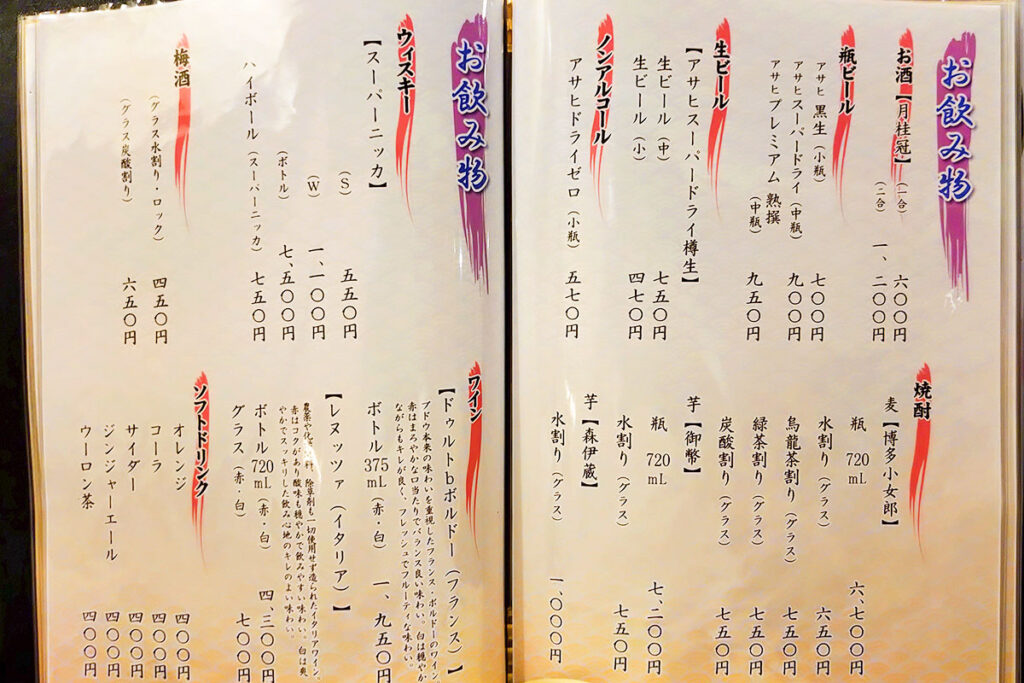 お飲み物
お酒【月桂冠】
(一合) 六〇〇円
(二合) 一、二〇〇円
瓶ビール
アサヒ 黒生(小瓶) 七〇〇円
アサヒスーパードライ(中瓶) 九〇〇円
アサヒプレミアム 熟撰(中瓶) 九五〇円
生ビール
【アサヒスーパードライ樽生】
生ビール(中) 七五〇円
生ビール(小) 四七〇円
ノンアルコール
アサヒドライゼロ(小瓶) 五七〇円
焼酎
麦【博多小女郎】
瓶 720mL 六、七〇〇円
水割り(グラス) 六五〇円
烏龍茶割り(グラス) 七五〇円
緑茶割り(グラス) 七五〇円
炭酸割り(グラス) 七五〇円
芋【御幣】
瓶 720mL 七、二〇〇円
水割り(グラス) 七五〇円
芋【森伊蔵】
水割り(グラス) 一、〇〇〇円
お飲み物
ウィスキー
【スーパーニッカ】
(S) 五五〇円
(W) 一、一〇〇円
(ボトル) 七、五〇〇円
ハイボール(スーパーニッカ) 七五〇円
梅酒
(グラス水割り・ロック) 四五〇円
(グラス炭酸割り) 六五〇円
ワイン
【ドゥルトbボルドー(フランス)】
ブドウ本来の味わいを重視したフランス・ボルドーのワイン。
赤はまろやかな口当たりでバランス良い味わい。白は穏やか
ながらもキレが良く、フレッシュでフルーティな味わい。
ボトル375mL(赤・白) 一、九五〇円
【レヌッツァ(イタリア)】
農薬や化 料、除草剤も一切使用せず造られたイタリアワイン。
赤はコクがあり酸味も穏やかで飲みやすい味わい。白は爽
やかでスッキリした飲み心地のキレのよい味わい。
ボトル720mL(赤・白) 四、三〇〇円
グラス(赤・白) 七〇〇円
ソフトドリンク
オレンジ 四〇〇円
コーラ 四〇〇円
サイダー 四〇〇円
ジンジャーエール 四〇〇円
ウーロン茶 四〇〇円